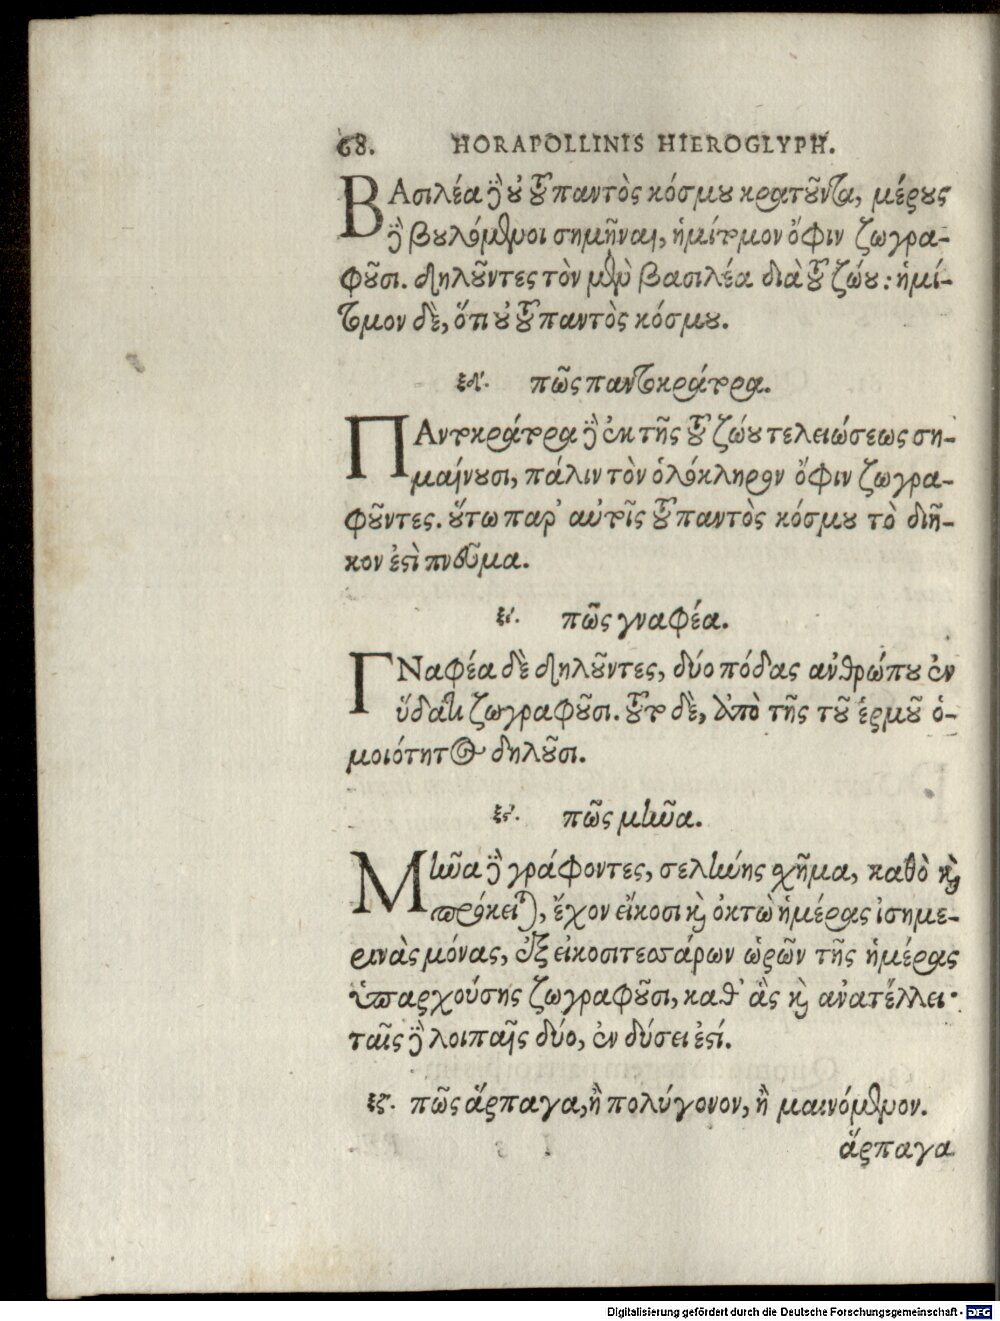 68. HORAPOLLINIS HIEROGLYPH.
ΒΑσιλέα ἢ οὐ τοῦ παντὸς κόσμου κρατοῦντα, μέρους
ἢ βουλόμενοι σημῆναι, ἡμίτομον ὄφιν ζωγρα-
φοῦσι. δηλοῦντες τὸν μὲν βασιλέα διὰ τοῦ ζώου: ἡμί-
τομον δὲ, ὅτι οὐ τοῦ παντὸς κόσμου.
ξδ´. πῶς παντοκράτορα.
ΠΑντοκράτορα ἢ ἐκ τῆς τοῦ ζώου τελειώσεως ση-
μαίνουσι, πάλιν τὸν ὁλόκληρον ὄφιν ζωγρα-
φοῦντες. οὕτω παρ' αὐτοῖς τοῦ παντὸς κόσμου τὸ διῆ-
κον ἐστὶ πνεῦμα.
ξέ. πῶς γναφέα.
ΓΝαφέα δὲ δηλοῦντες, δύο πόδας ἀνθρώπου ἐν
ὕδατι ζωγραφοῦσι. τοῦτο δὲ, ἀπὸ τῆς τοῦ ἔργου ὁ-
μοιότητος δηλοῦσι.
ξς´. πῶς μῆνα.
Μῆνα ἢ γράφοντες, σελήνης σχῆμα, καθὸ καὶ
πρόκειται, ἔχον εἴκοσι καὶ ὀκτὼ ἡμέρας ἰσημε-
ρινὰς μόνας, ἐξ εἰκοσιτεσσάρων ὡρῶν τῆς ἡμέρας
ὑπαρχούσης ζωγραφοῦσι, καθ' ἃς καὶ ἀνατέλλει·
ταῖς ἢ λοιπαῖς δύο, ἐν δύσει ἐστί.
ξζ´. πῶς ἅρπαγα, ἢ πολύγονον, ἢ μαινόμενον.
ἅρπαγα
Digitalisierung gefördert durch die Deutsche Forschungsgemeinschaft - DFG